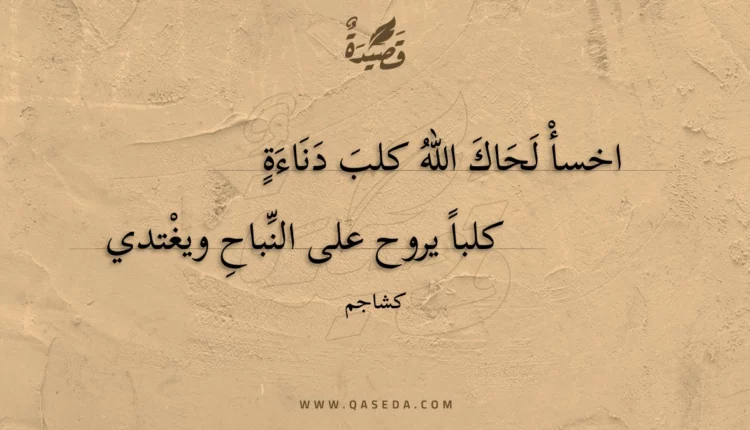 قَصِيدَةٌ
اخسأْ لَحَاكَ اللهُ كلبَ دَنَاءَةٍ
كلباً يروح على النِّباحِ ويغْتدي
كشاجم
WWW.QASEDA.COM